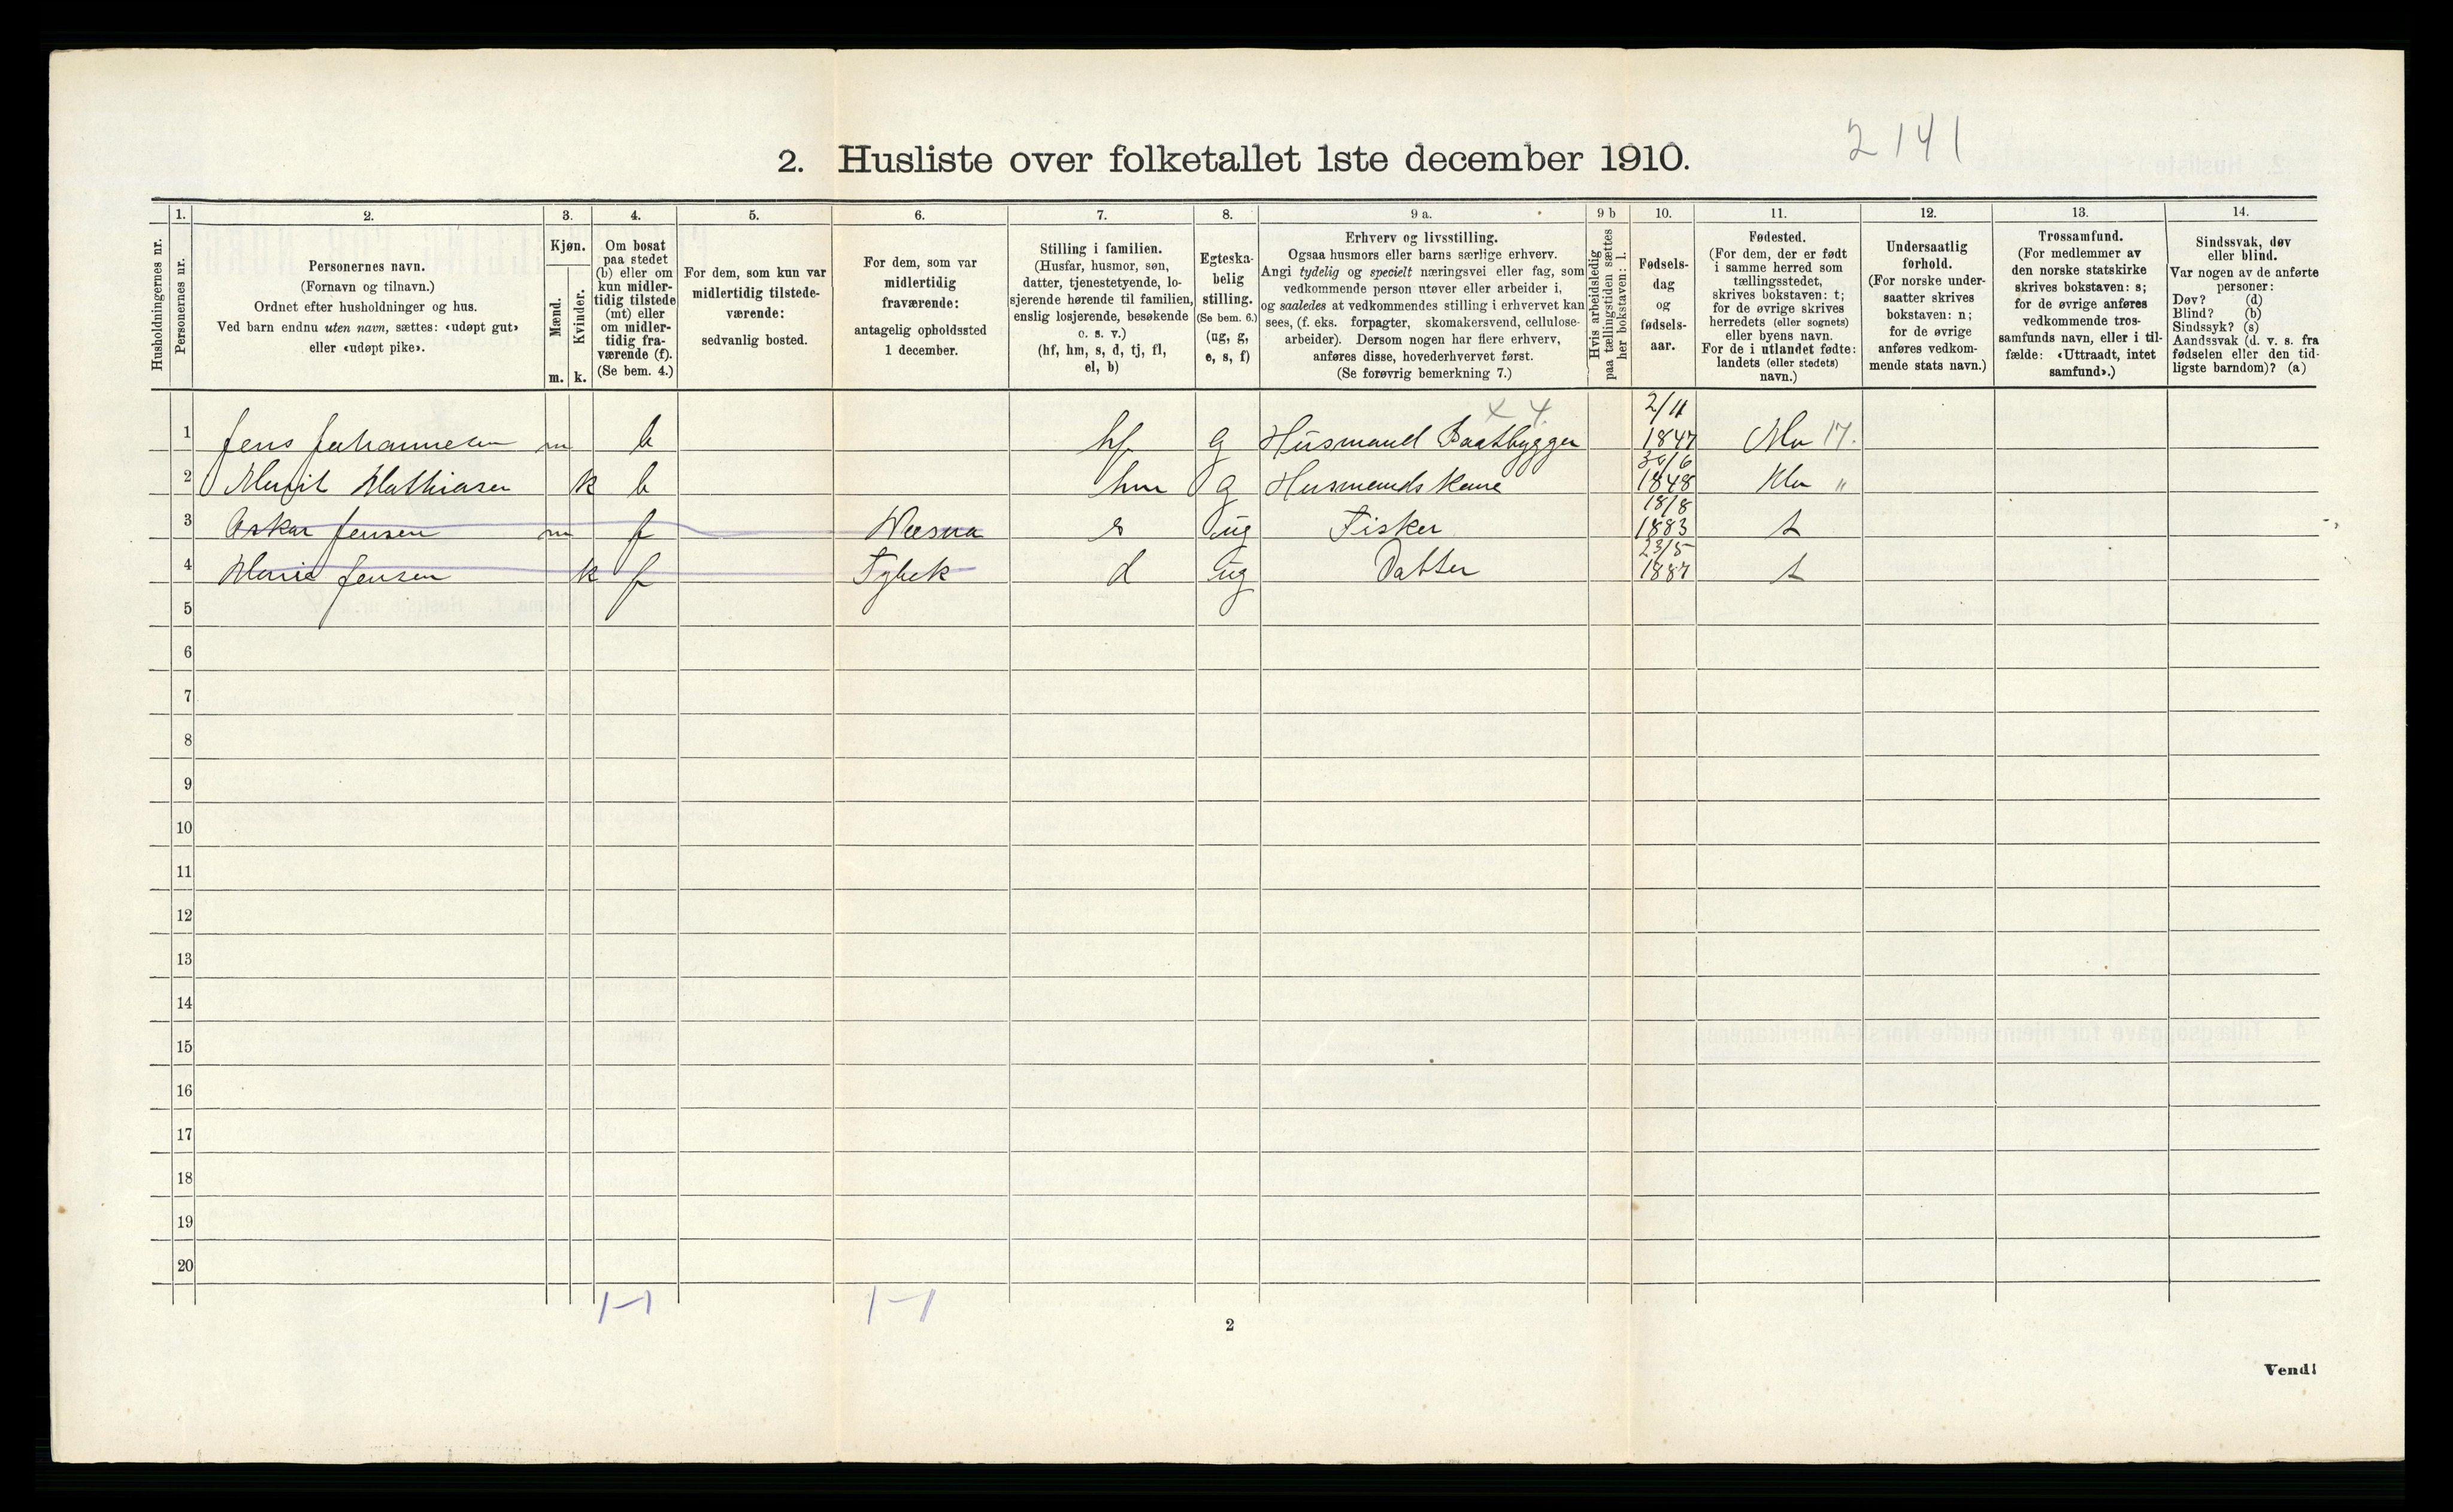 2141
2. Husliste over folketallet 1ste december 1910.
Husholdningernes nr.
1.
Personernes nr.
2.
Personernes navn.
(Fornavn og tilnavn.)
Ordnet efter husholdninger og hus.
Ved barn endnu uten navn, sættes: «udøpt gut»
eller «udøpt pike».
3.
Kjøn.
Mænd.
Kvinder.
m. k.
4.
Om bosat
paa stedet
(b) eller om
kun midler-
tidig tilstede
(mt) eller
om midler-
tidig fra-
værende (f).
(Se bem. 4.)
5.
For dem, som kun var
midlertidig tilstede-
værende:
sedvanlig bosted.
6.
For dem, som var
midlertidig
fraværende:
antagelig opholdssted
1 december.
7.
Stilling i familien.
(Husfar, husmor, søn,
datter, tjenestetyende, lo-
sjerende hørende til familien,
enslig losjerende, besøkende
o. s. v.)
(hf, hm, s, d, tj, fl,
el, b)
8.
Egteska-
belig
stilling.
(Se bem. 6.)
(ug, g,
e, s, f)
9 a.
Erhverv og livsstilling.
Ogsaa husmors eller barns særlige erhverv.
Angi tydelig og specielt næringsvei eller fag, som
vedkommende person utøver eller arbeider i,
og saaledes at vedkommendes stilling i erhvervet kan
sees, (f. eks. forpagter, skomakersvend, cellulose-
arbeider). Dersom nogen har flere erhverv,
anføres disse, hovederhvervet først.
(Se forøvrig bemerkning 7.)
9 b
Hvis arbeidsledig
paa tællingstiden sættes
her bokstaven: l.
10.
Fødsels-
dag
og
fødsels-
aar.
11.
Fødested.
(For dem, der er født
i samme herred som
tællingsstedet,
skrives bokstaven: t;
for de øvrige skrives
herredets (eller sognets)
eller byens navn.
For de i utlandet fødte:
landets (eller stedets)
navn.)
12.
Undersaatlig
forhold.
(For norske under-
saatter skrives
bokstaven: n;
for de øvrige
anføres vedkom-
mende stats navn.)
13.
Trossamfund.
(For medlemmer av
den norske statskirke
skrives bokstaven: s;
for de øvrige anføres
vedkommende tros-
samfunds navn, eller i til-
fælde: «Uttraadt, intet
samfund».)
14.
Sindssvak, døv
eller blind.
Var nogen av de anførte
personer:
Døv? (d)
Blind? (b)
Sindssyk? (s)
Aandssvak (d. v. s. fra
fødselen eller den tid-
ligste barndom)? (a)
x 4
1 Jens Johannesen m b hf g Husmand Baatbygger 2/11 1847 Mo 17.
2 Marit Mathiasen k b hm g Husmandskone 30/6 1848 Mo "
3 Oskar Jensen m f s ug Fisker 18/8 1883 t
4 Maria Jensen k f d ug Datter 23/5 1887 t
5
6
7
8
9
10
11
12
13
14
15
16
17
18
19
20
1-1 1-1
2
Vend!